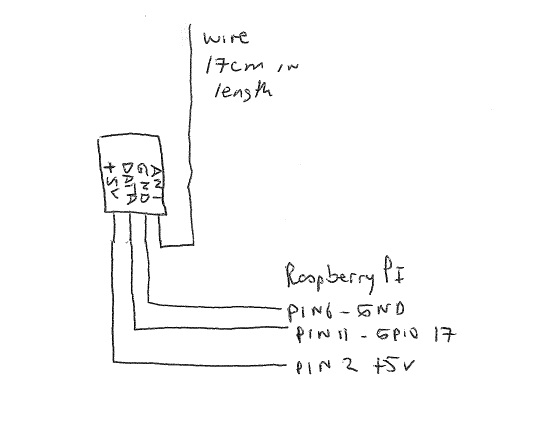 wire
17cm in
length
+5V
DATA
GND
ANT
Raspberry PI
PIN6 - GND
PIN 11 - GPIO 17
PIN 2 +5V